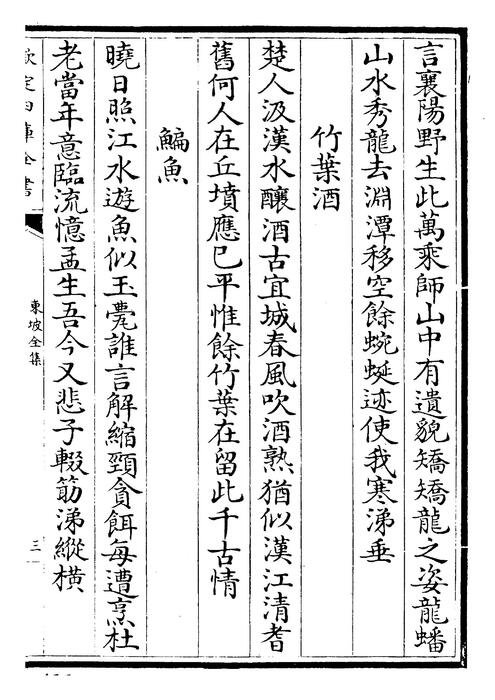 言襄陽野生此萬乘師山中有遺貌矯矯龍之姿龍蟠
山水秀龍去淵潭移空餘蜿蜒迹使我寒涕垂
竹葉酒
楚人汲漢水釀酒古宜城春風吹酒熟猶似漢江清耆
舊何人在丘墳應已平惟餘竹葉在留此千古情
鯿魚
曉日照江水遊魚似玉甖誰言解縮頸貪餌每遭烹杜
老當年意臨流憶孟生吾今又悲子輟筯涕縱橫
欽定四庫全書
東坡全集
三